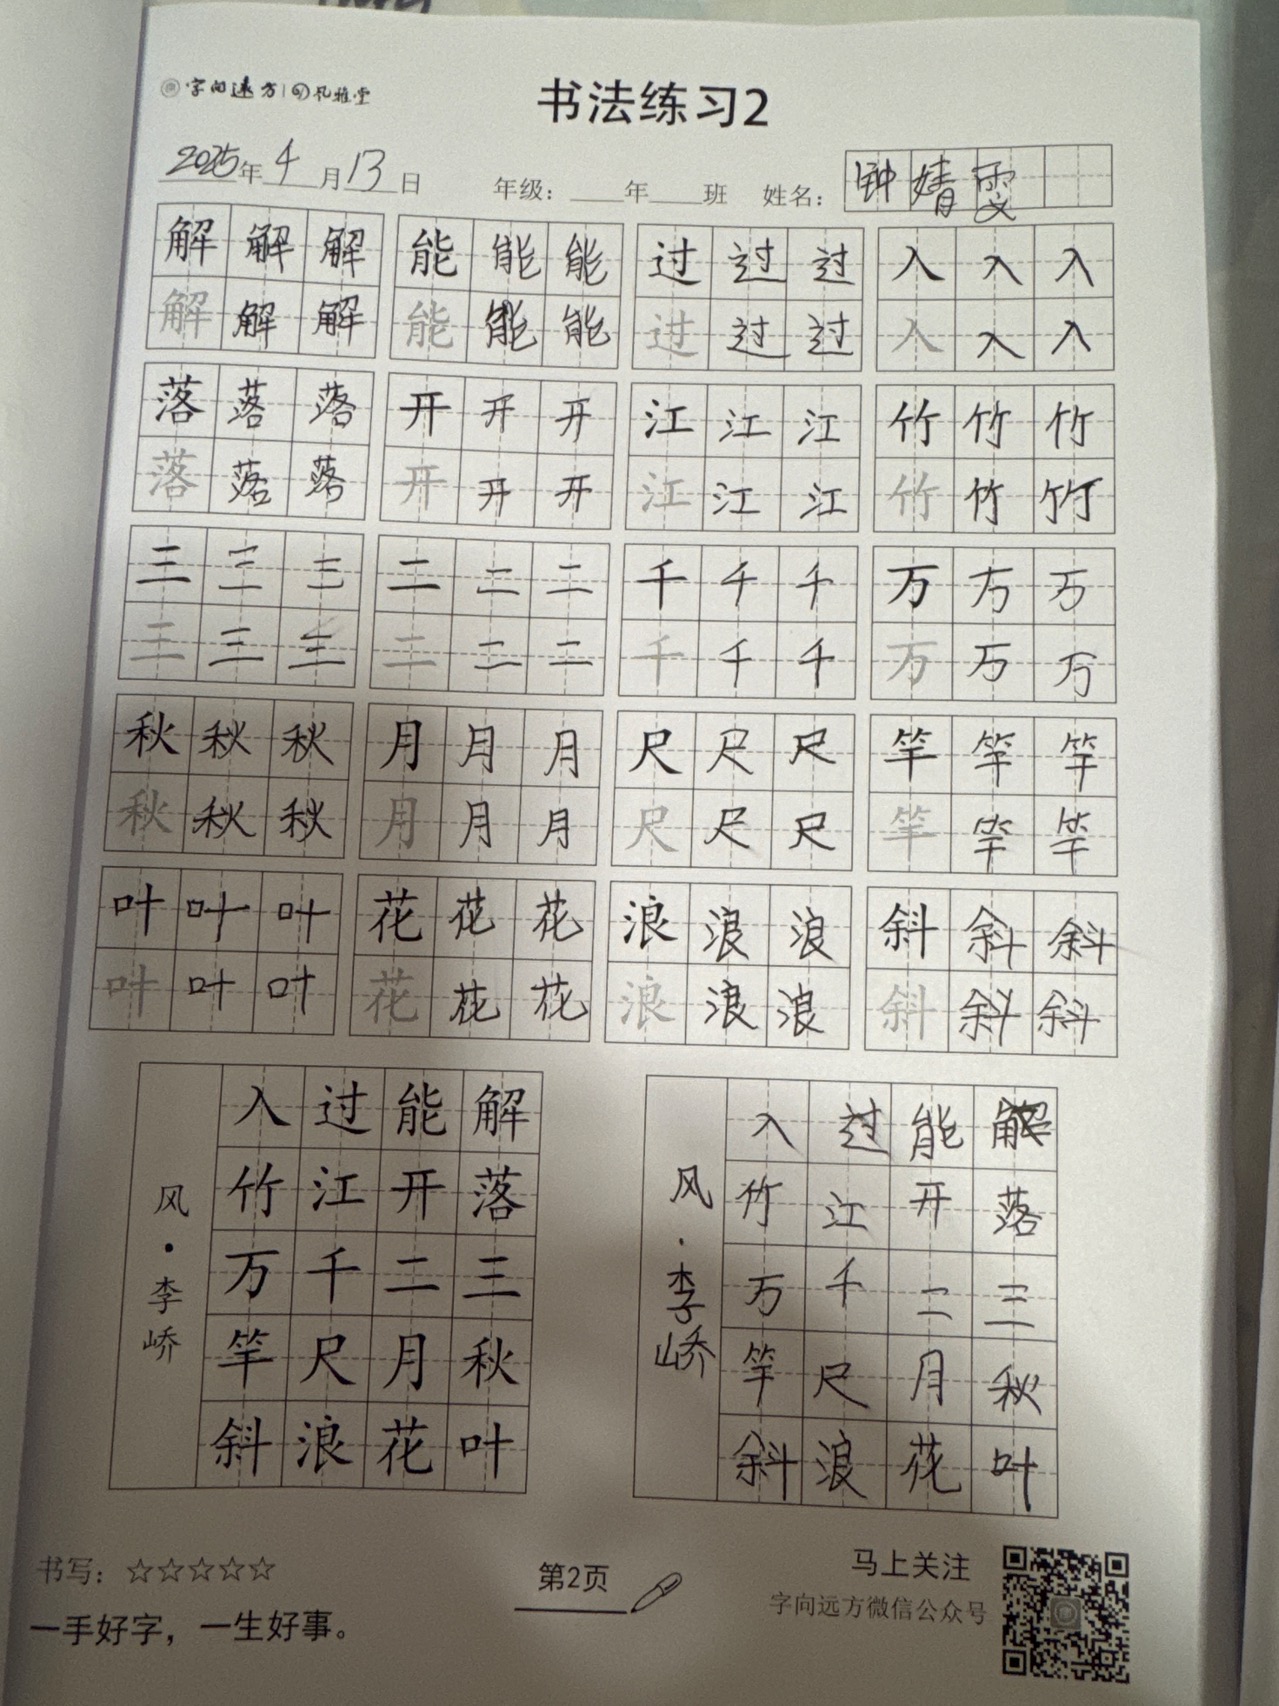 字向远方 风雅堂
书法练习2
2025年4月13日 年级：____年____班 姓名：钟婧雯
解解解 能能能 过过过 入入入
解解解 能能能 过过过 入入入
落落落 开开开 江江江 竹竹竹
落落落 开开开 江江江 竹竹竹
三三三 二二二 千千千 万万万
三三三 二二二 千千千 万万万
秋秋秋 月月月 尺尺尺 竿竿竿
秋秋秋 月月月 尺尺尺 竿竿竿
叶叶叶 花花花 浪浪浪 斜斜斜
叶叶叶 花花花 浪浪浪 斜斜斜
解落三秋叶
能开二月花
过江千尺浪
入竹万竿斜
风·李峤
解落三秋叶
能开二月花
过江千尺浪
入竹万竿斜
风·李峤
书写：☆☆☆☆☆
一手好字，一生好事。
第2页
马上关注
字向远方微信公众号